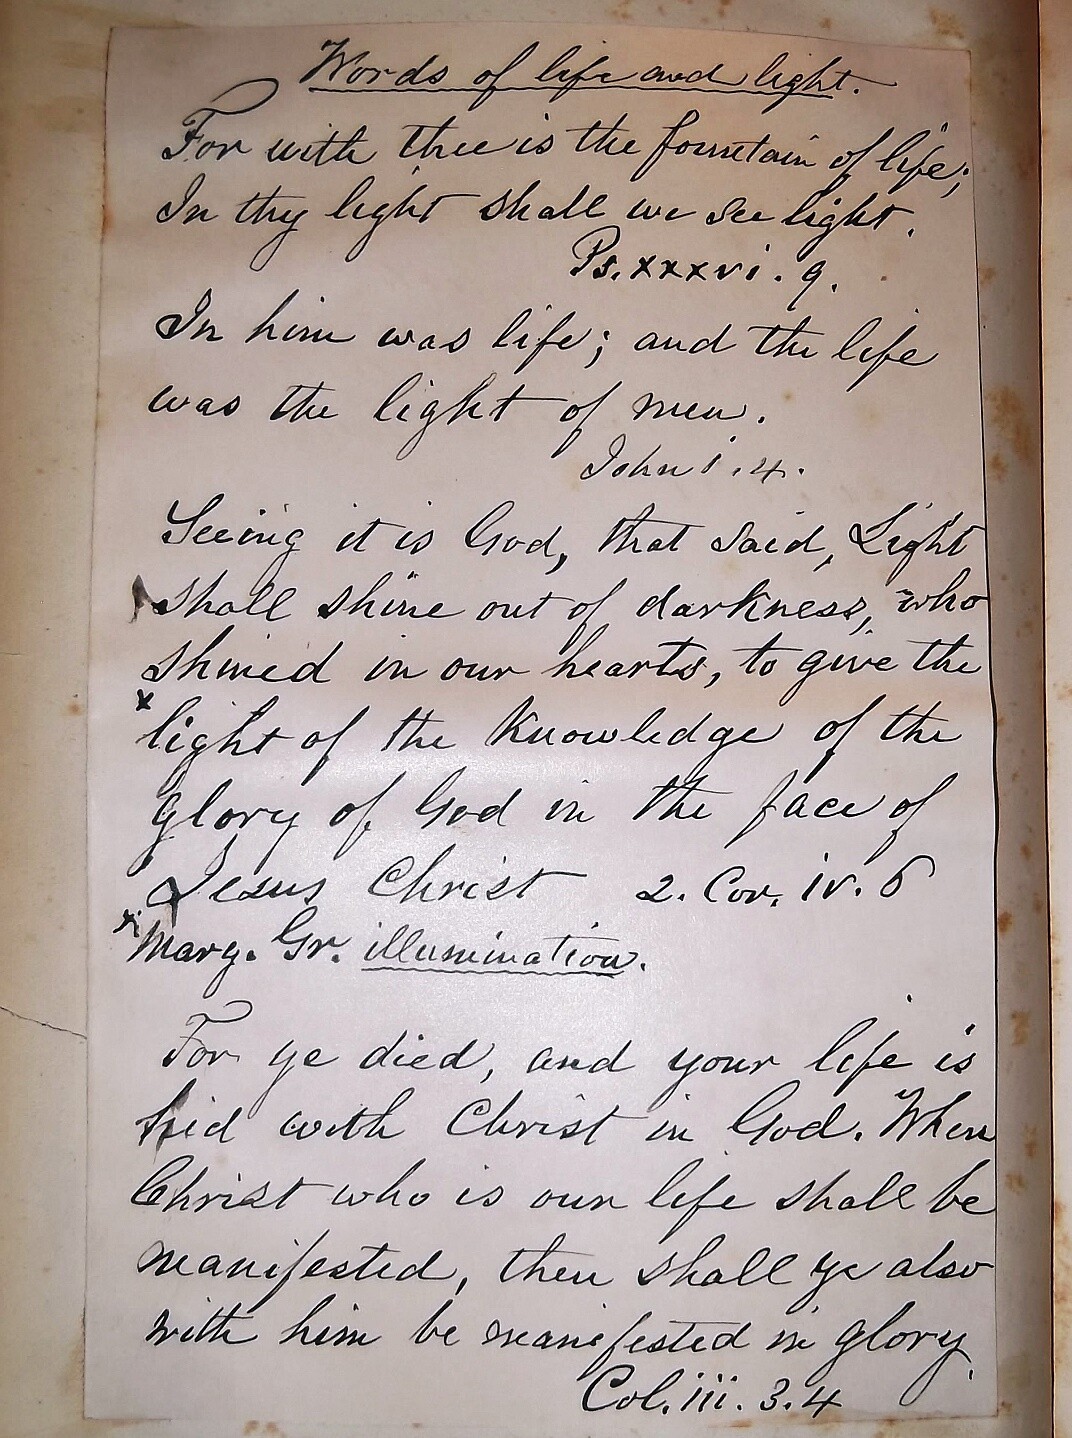 Words of life and light.
For with thee is the fountain of life;
In thy light shall we see light.
Ps. xxxvi. 9.
In him was life; and the life
was the light of men.
John i. 4.
Seeing it is God, that said, Light
shall shine out of darkness, who
shined in our hearts, to give the
x
light of the knowledge of the
glory of God in the face of
Jesus Christ 2. Cor. iv. 6
x Marg. Gr. illumination.
For ye died, and your life is
hid with Christ in God. When
Christ who is our life shall be
manifested, then shall ye also
with him be manifested in glory.
Col. iii. 3. 4